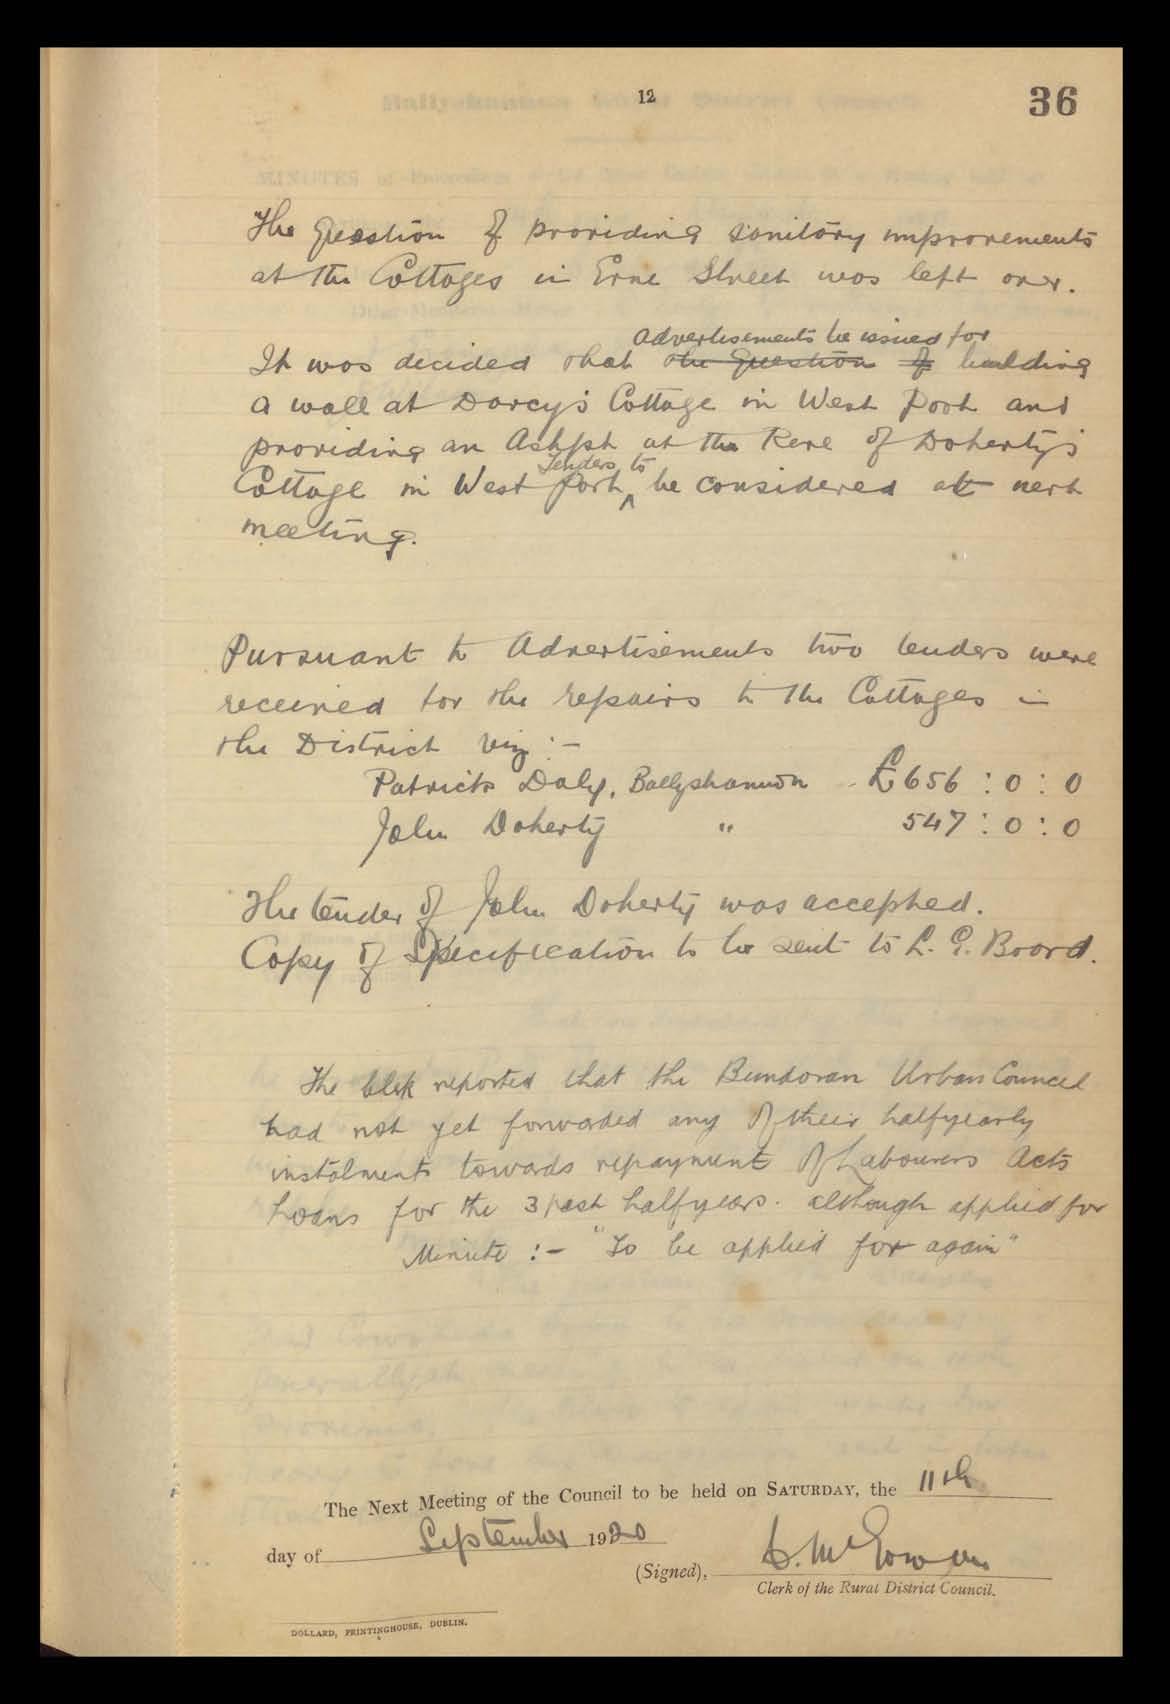 12
36
The Question of providing sanitary improvements
at the Cottages in Erne Street was left over.
advertisements be issued for
It was decided that the question of building
a wall at Darcy's Cottage in West Port and
providing an Ashpit at the Rere of Doherty's
Tenders to
Cottage in West Port ^ be considered at next
meeting.
Pursuant to Advertisements two tenders were
received for the repairs to the Cottages in
the District viz :-
Patrick Daly, Ballyshannon £656 : 0 : 0
John Doherty " 547 : 0 : 0
The tender of John Doherty was accepted.
Copy of Specification to be sent to L. G. Board.
The Clerk reported that the Bundoran Urban Council
had not yet forwarded any of their halfyearly
instalments towards repayment of Labourers Acts
Loans for the 3 past halfyears. although applied for
Minute :- "To be applied for again"
The Next Meeting of the Council to be held on SATURDAY, the 11th
day of September 1920
(Signed),
Clerk of the Rural District Council.
DOLLARD, PRINTINGHOUSE, DUBLIN.